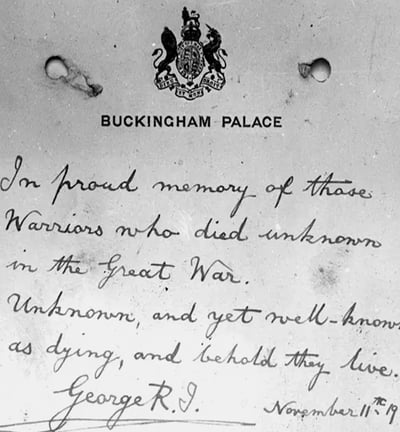 BUCKINGHAM PALACE
In proud memory of those
Warriors who died unknown
in the Great War.
Unknown, and yet well-known
as dying, and behold they live.
George R.I.
November 11th 19